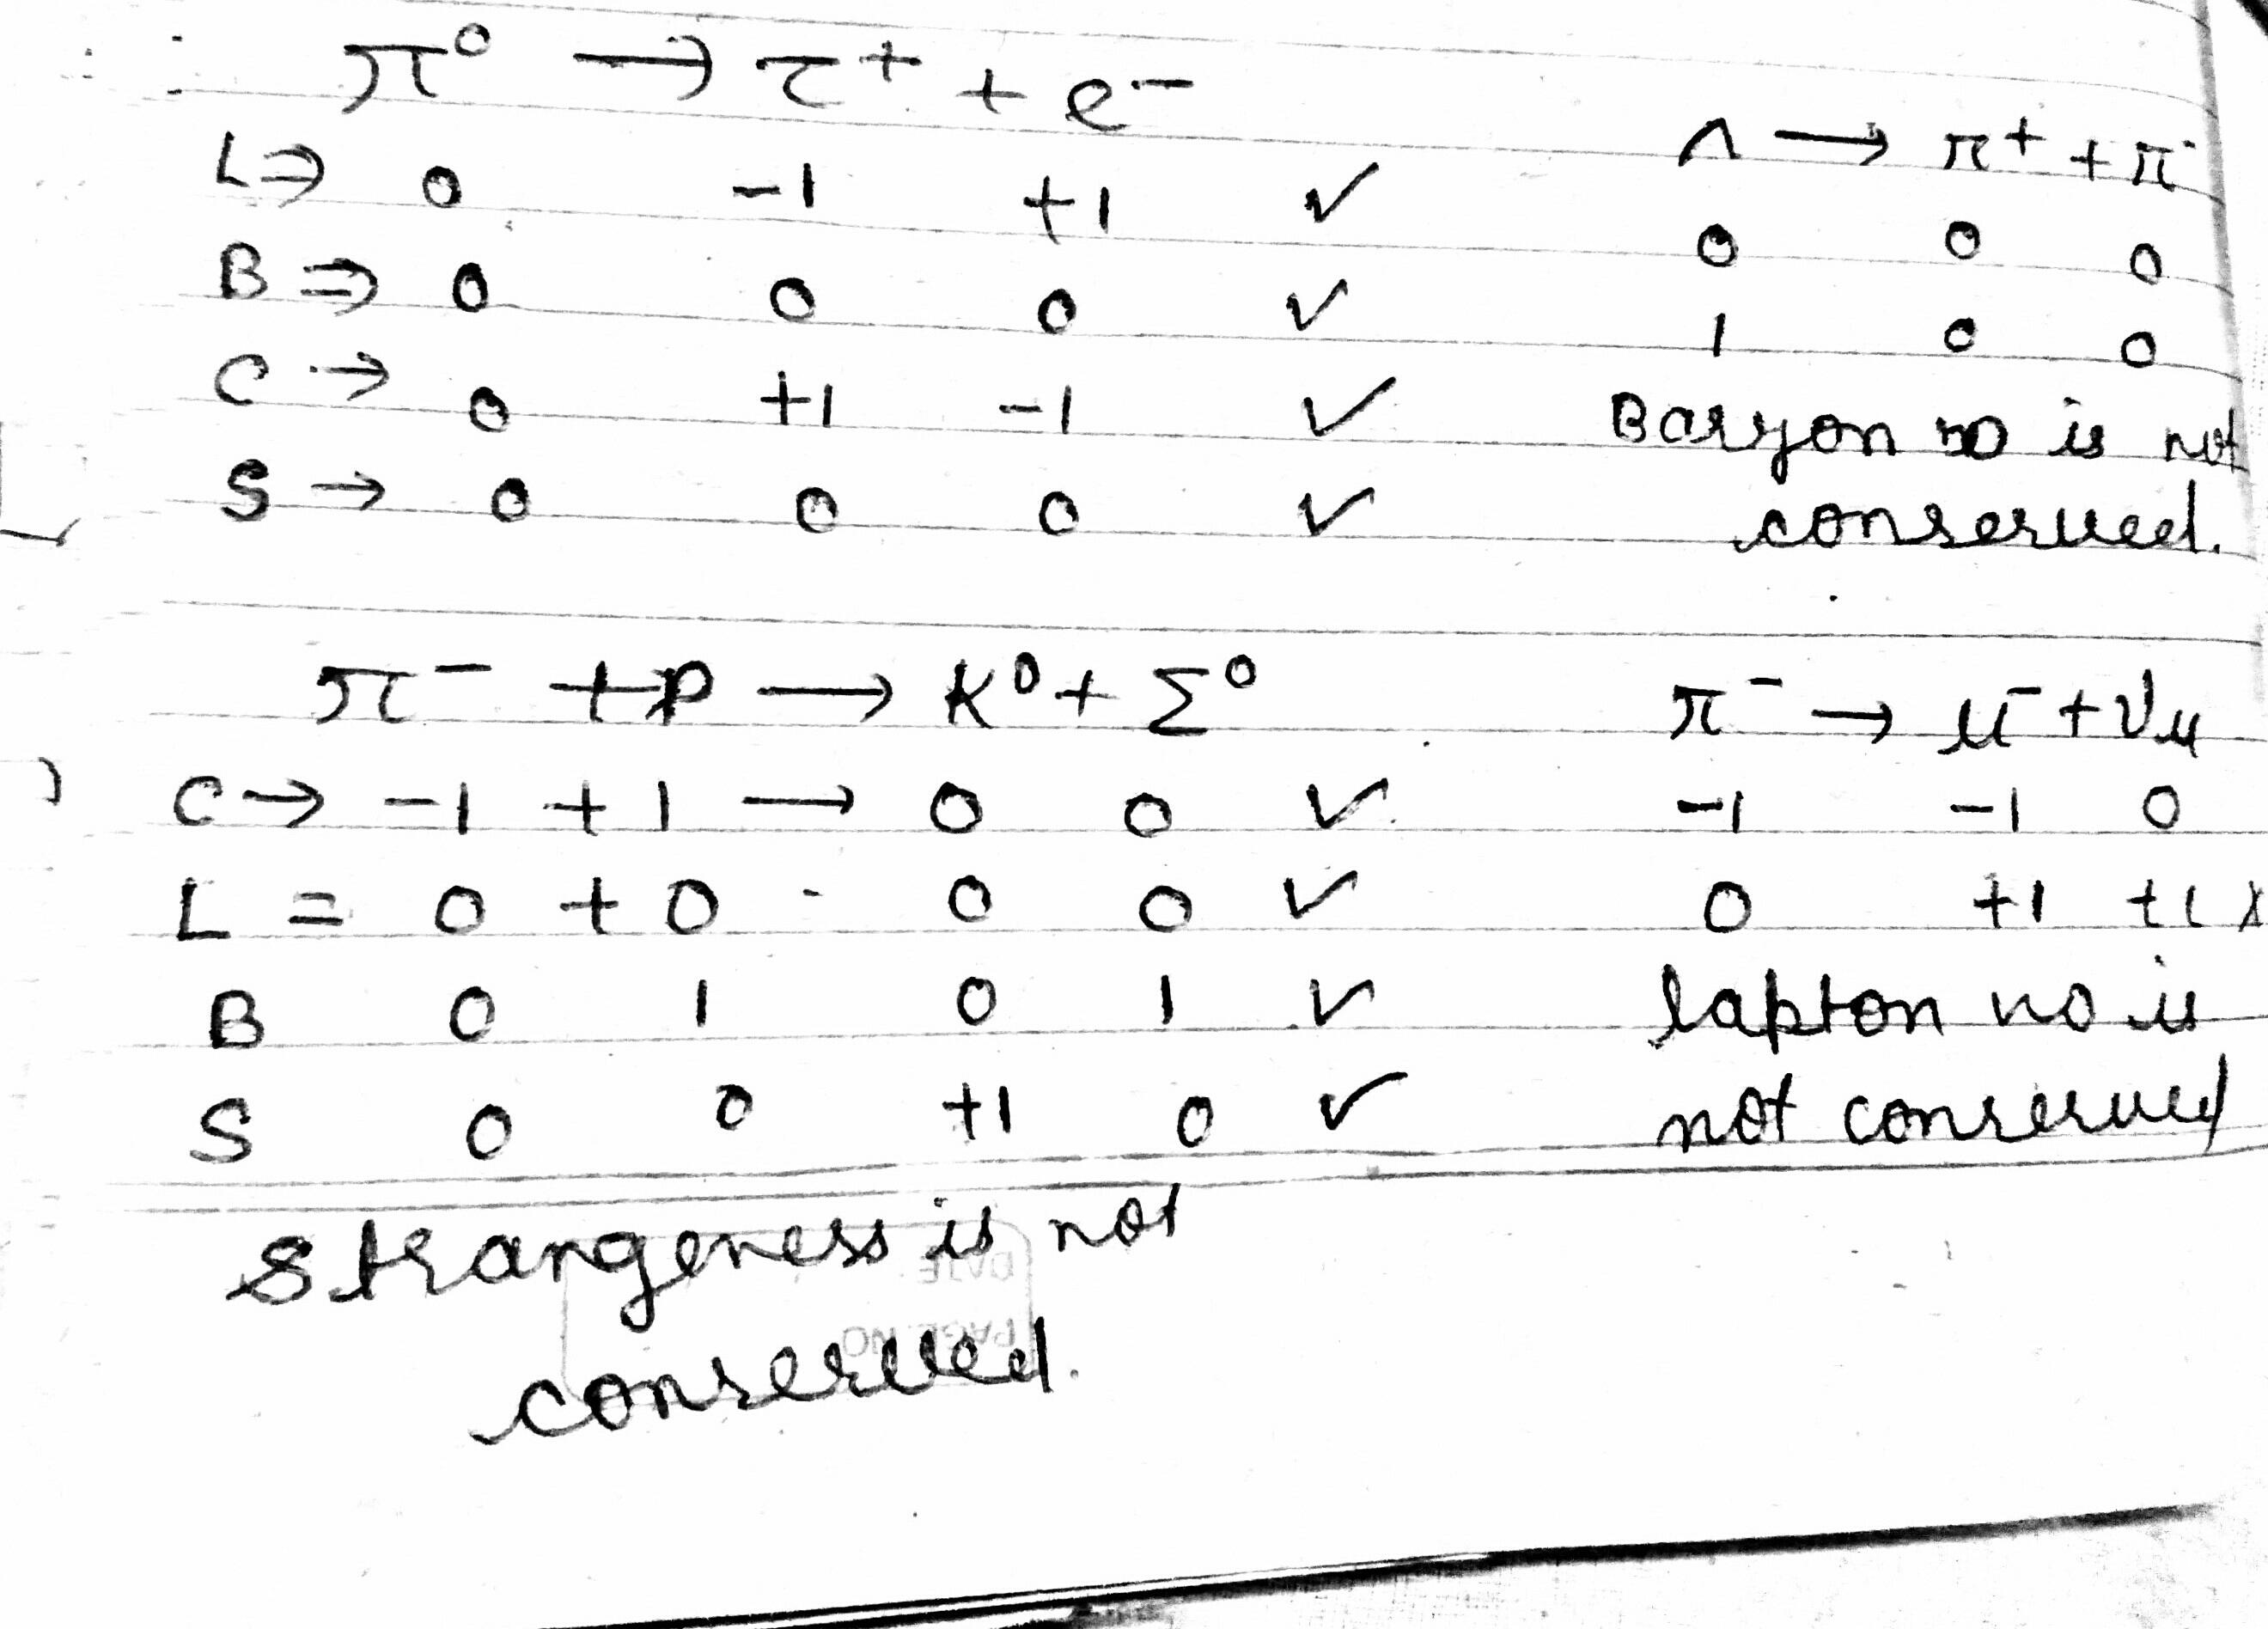 π⁰ → τ⁺ + e⁻
L ⇒ 0 -1 +1 ✓
B ⇒ 0 0 0 ✓
C → 0 +1 -1 ✓
S → 0 0 0 ✓
Λ → π⁺ + π⁻
0 0 0
1 0 0
Baryon no is not
conserved.
π⁻ + p → K⁰ + Σ⁰
C → -1 +1 → 0 0 ✓
L = 0 + 0 - 0 0 ✓
B 0 1 0 1 ✓
S 0 0 +1 0 ✓
Strangeness is not
conserved.
π⁻ → μ⁻ + νμ
-1 -1 0
0 +1 +1 x
lapton no is
not conserved
DATE
PAGE NO